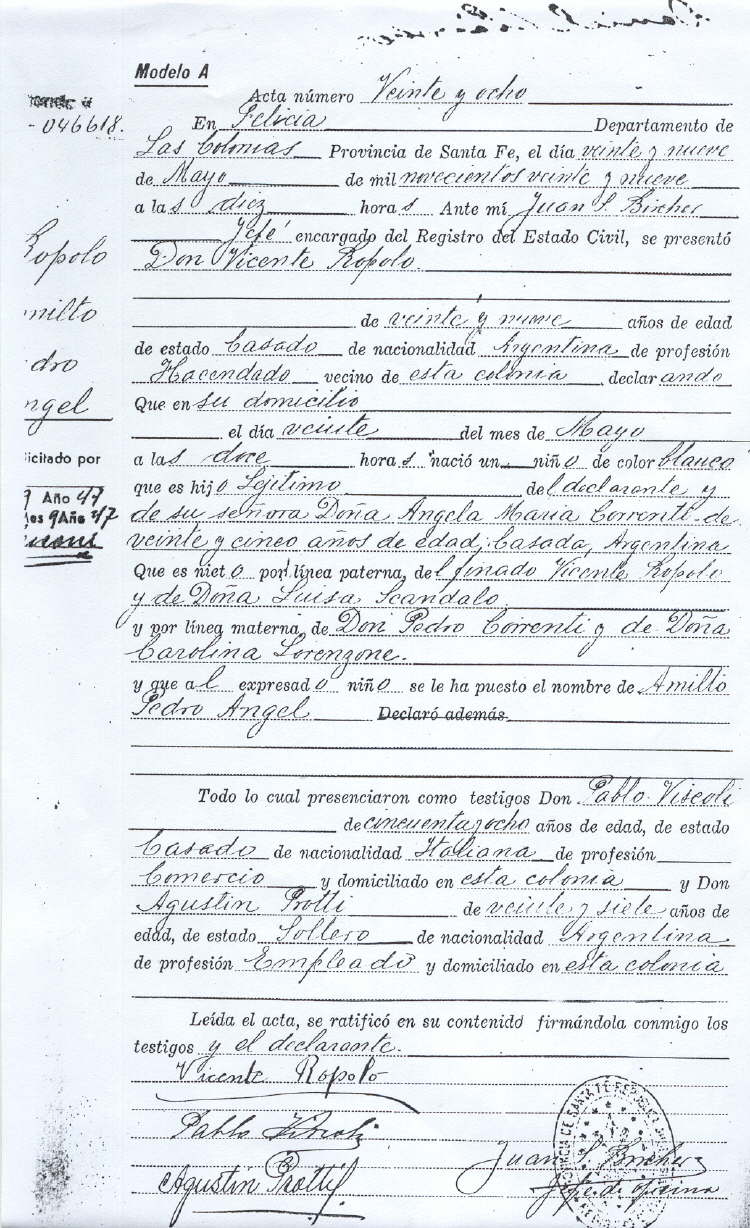 Modelo A
Acta número Veinte y ocho
- 046618.
En Felicia Departamento de
Las Colonias Provincia de Santa Fe, el día veinte y nueve
de Mayo de mil novecientos veinte y nueve
a las diez horas Ante mí Juan S. Bircher
Jefé encargado del Registro del Estado Civil, se presentó
Ropolo
Don Vicente Ropolo.
milto
de veinte y nueve años de edad
dro
de estado Casado de nacionalidad Argentina de profesión
Hacendado vecino de esta colonia declarando
ngel
Que en su domicilio
el día veinte del mes de Mayo
icitado por
a las doce horas nació un niño de color blanco
Año 47
que es hijo Lejitimo del declarante y
es 9 Año 47
de su señora Doña Angela Maria Correnti de
veinte y cinco años de edad, Casada, Argentina
Que es nieto por línea paterna, del finado Vicente Ropolo
y de Doña Luisa Scandalo
y por línea materna, de Don Pedro Correnti y de Doña
Carolina Lorenzone.
y que al expresado niño se le ha puesto el nombre de Amilto
Pedro Angel Declaró además
Todo lo cual presenciaron como testigos Don Pablo Viscoli
de cincuenta y ocho años de edad, de estado
Casado de nacionalidad Italiana de profesión
Comercio y domiciliado en esta colonia y Don
Agustin Protti de veinte y siete años de
edad, de estado Soltero de nacionalidad Argentina
de profesión Empleado y domiciliado en esta colonia
Leída el acta, se ratificó en su contenido firmándola conmigo los
testigos y el declarante.
Vicente Ropolo
Pablo Viscoli
Juan S. Bircher
Agustin Protti
Jefe de oficina